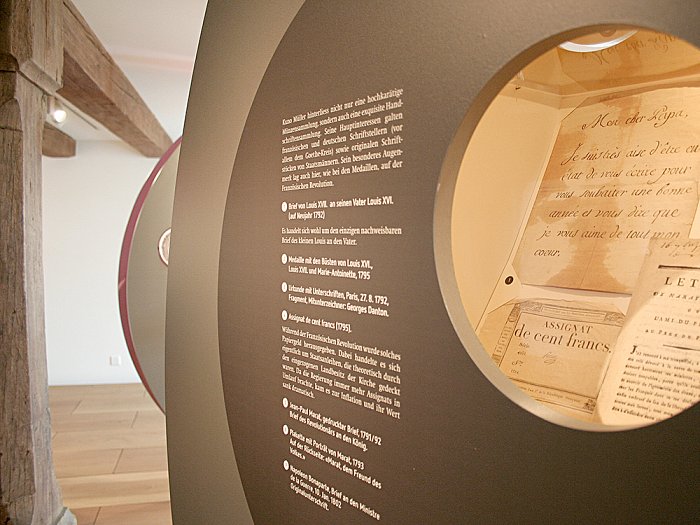 Kuno Müller hinterliess nicht nur eine hochkarätige
Münzensammlung, sondern auch eine exquisite Hand-
schriftensammlung. Seine Hauptinteressen galten
französischen und deutschen Schriftstellern (vor
allem dem Goethe-Kreis) sowie originalen Schrift-
stücken von Staatsmännern. Sein besonderes Augen-
merk lag auch hier, wie bei den Medaillen, auf der
Französischen Revolution.
Brief von Louis XVII. an seinen Vater Louis XVI.
(auf Neujahr 1792)
Es handelt sich wohl um den einzigen nachweisbaren
Brief des kleinen Louis an den Vater.
Medaille mit den Büsten von Louis XVI.,
Louis XVII. und Marie-Antoinette, 1795
Urkunde mit Unterschriften, Paris, 27. 8. 1792,
Fragment, Mitunterzeichner: Georges Danton.
Assignat de cent francs (1795).
Während der Französischen Revolution wurde solches
Papiergeld herausgegeben. Dabei handelte es sich
eigentlich um Staatsanleihen, die theoretisch durch
den eingezogenen Landbesitz der Kirche gedeckt
waren. Da die Regierung immer mehr Assignats in
Umlauf brachte, kam es zur Inflation und ihr Wert
sank dramatisch.
Jean-Paul Marat, gedruckter Brief, 1791/92
Brief des Revolutionärs an den König.
Plakette mit Porträt von Marat, 1793
Auf der Rückseite: «Marat, dem Freund des
Volkes.»
Napoleon Bonaparte, Brief an den Ministre
de la Guerre, 10. Jan. 1802
Originalunterschrift.
Mon cher Papa,
Je suis très aise d'être en
état de vous écrire pour
vous souhaiter une bonne
année et vous dire que
je vous aime de tout mon
coeur.
ASSIGNAT
de cent francs.
LET
DE MARA
L'AMI DU P
AU PRES DE P